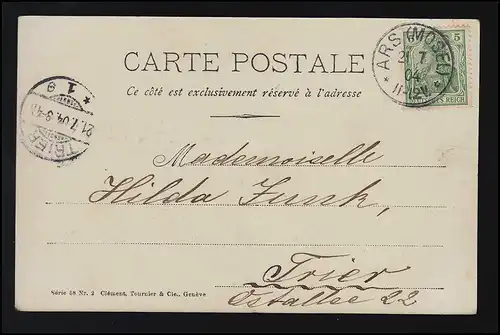 CARTE POSTALE
Ce côté est exclusivement réservé à l'adresse
5
ARS (MOSEL)
7
04
REICH
* 1 e
21.7.04.
TRIER
Mademoiselle
Hilda Funk,
Trier
Ostallee 22
Série 58 Nr. 2 Clément, Tournier & Cie., Genève